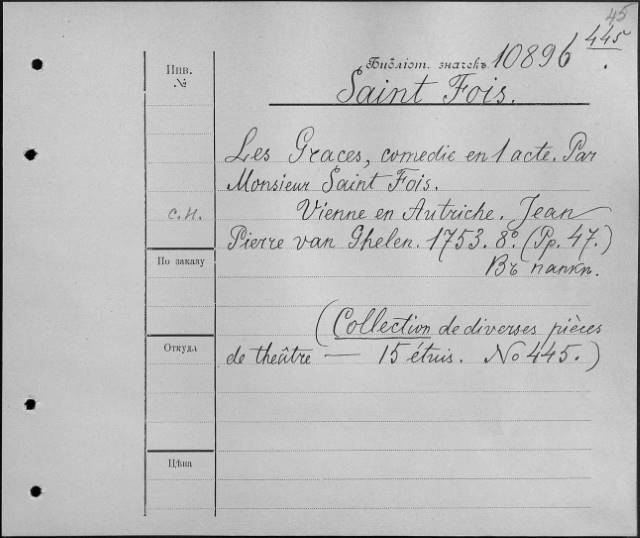 45
445
Инв.
№
Библіот. значекъ 10896
Saint Fois.
Les Graces, comedie en 1 acte. Par
Monsieur Saint Fois.
с.н.
Vienne en Autriche. Jean
Pierre van Ghelen. 1753. 8º. (Pp. 47.)
По заказу
Въ папкп.
(Collection de diverses pièces
Откуда
de theâtre — 15 étuis. No 445.)
Цѣна